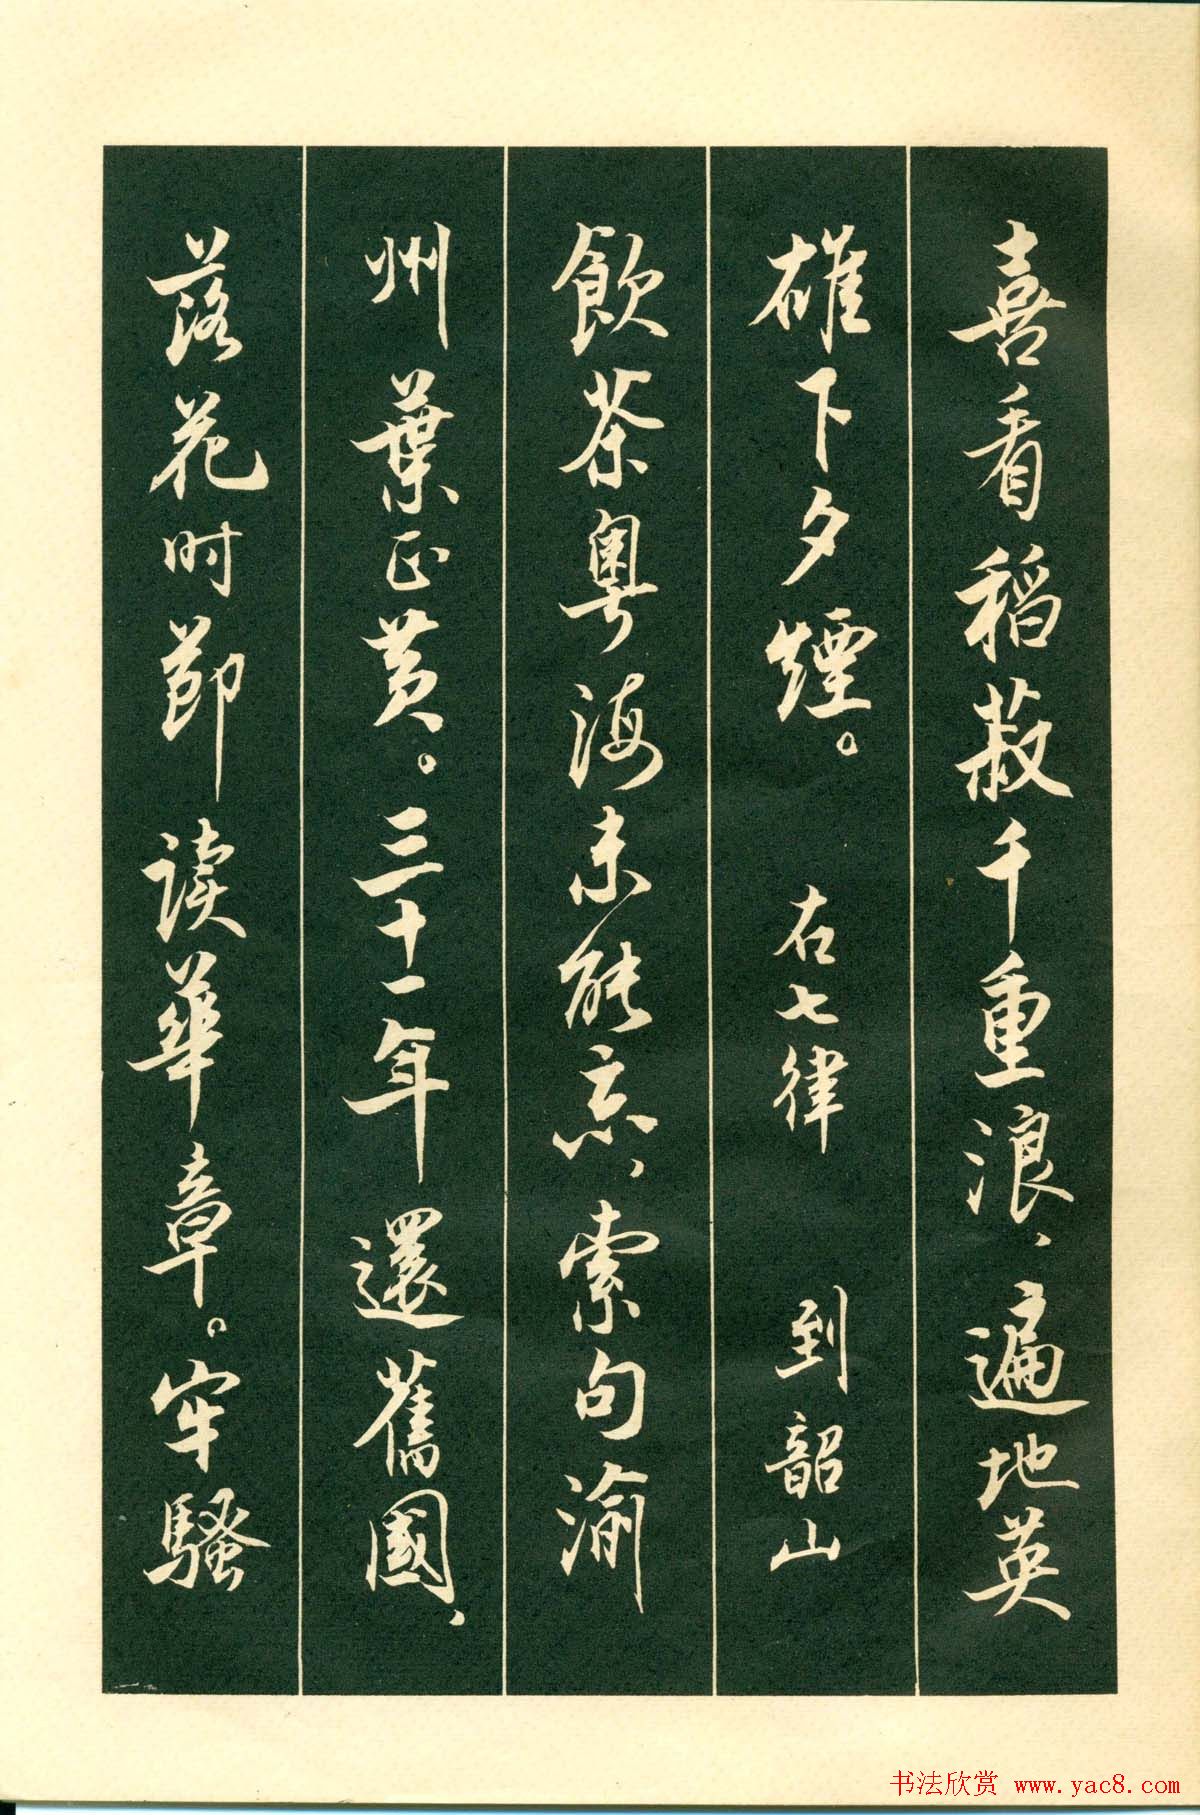 喜看稻菽千重浪、遍地英
雄下夕煙。　右七律　到韶山
飲茶粤海未能忘、索句渝
州葉正黄。三十一年還舊國、
落花时節读華章。牢騷
书法欣赏 www.yac8.com